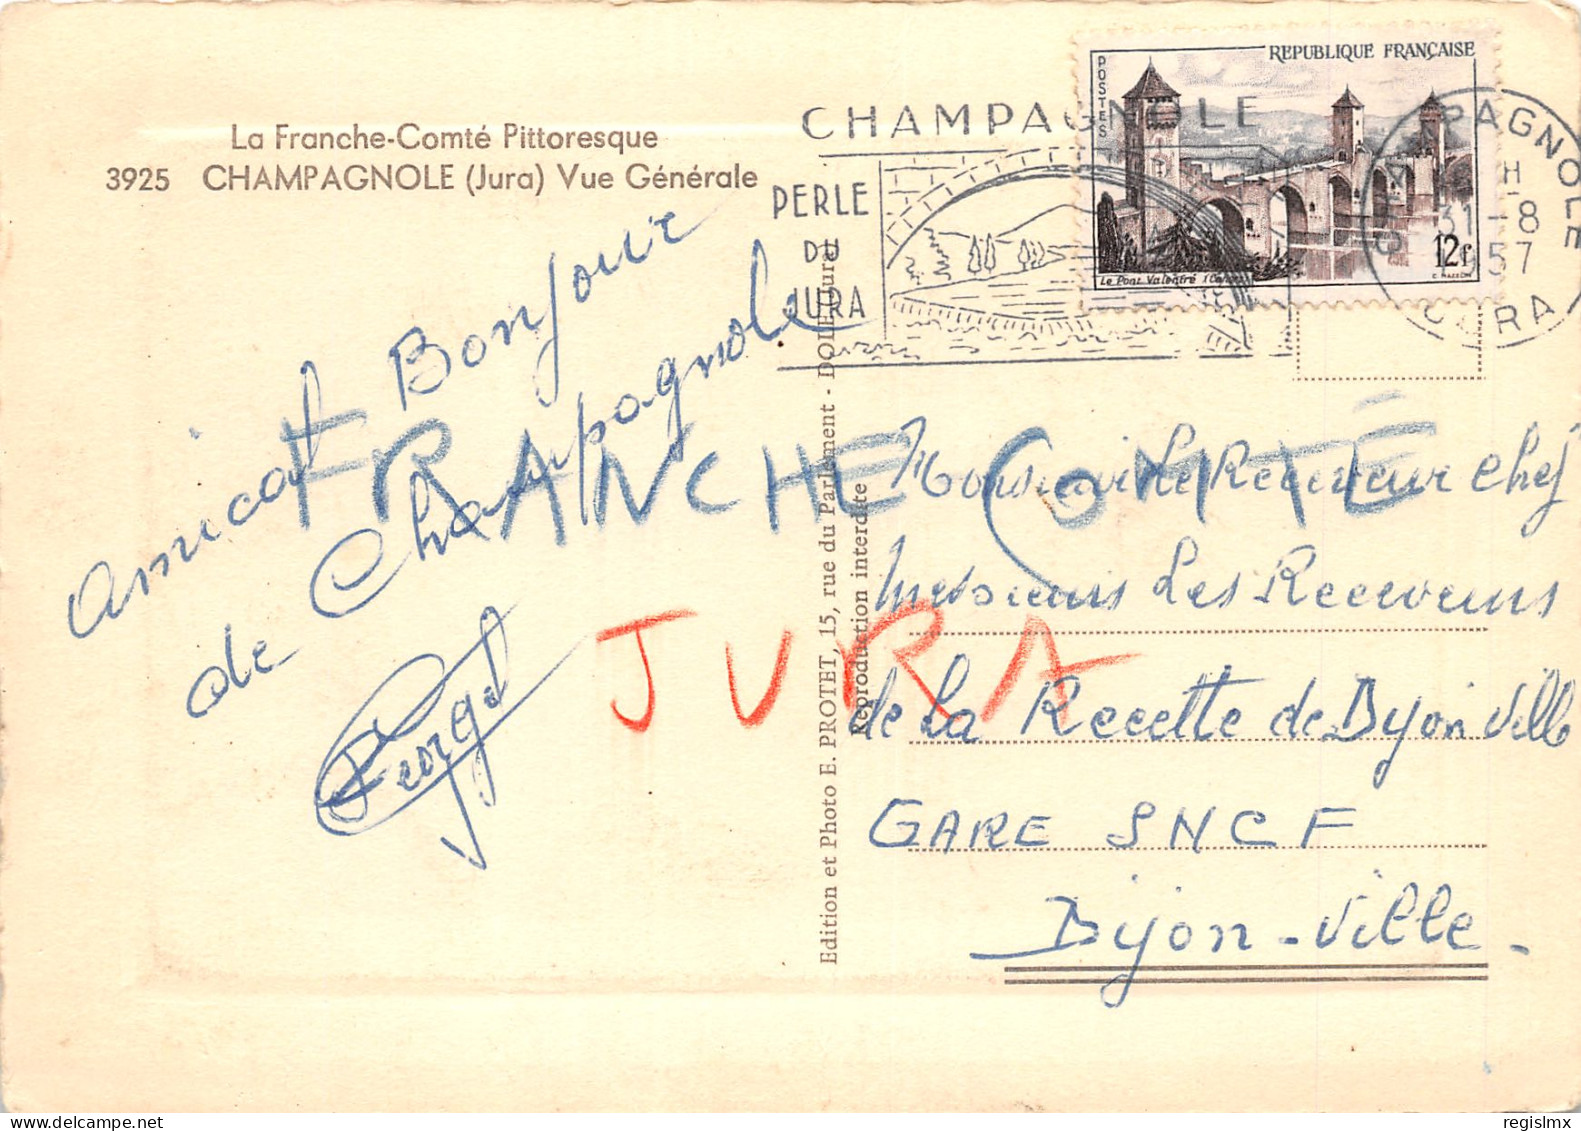 La Franche-Comté Pittoresque
3925 CHAMPAGNOLE (Jura) Vue Générale
CHAMPAGNOLE
PERLE
DU
JURA
REPUBLIQUE FRANÇAISE
POSTES
12f
Le Pont Valentré
CHAMPAGNOLE
31-8
1957
JURA
Amical Bonjour
de Champagnole
FRANCHE COMTÉ
JURA
Edition et Photo E. PROTET, 15, rue du Parlement - DOLE (Jura)
Reproduction interdite
Monsieur Le Receveur chef
Messieurs Les Receveurs
de La Recette de Dijon Ville
GARE SNCF
Dijon-Ville-
regislmx
delcampe.net